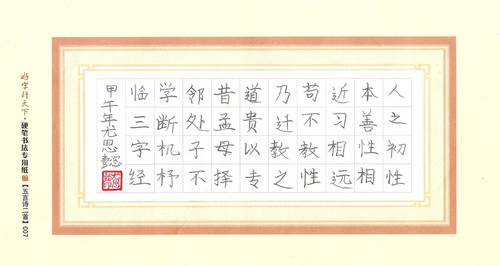 人之初性
本善性相
近习相远
苟不教性
乃迁教之
道贵以专
昔孟母择
邻处子不
学断机杼
临三字经
甲午年尤思懿
好字行天下·硬笔书法专用纸【五言诗二首】007